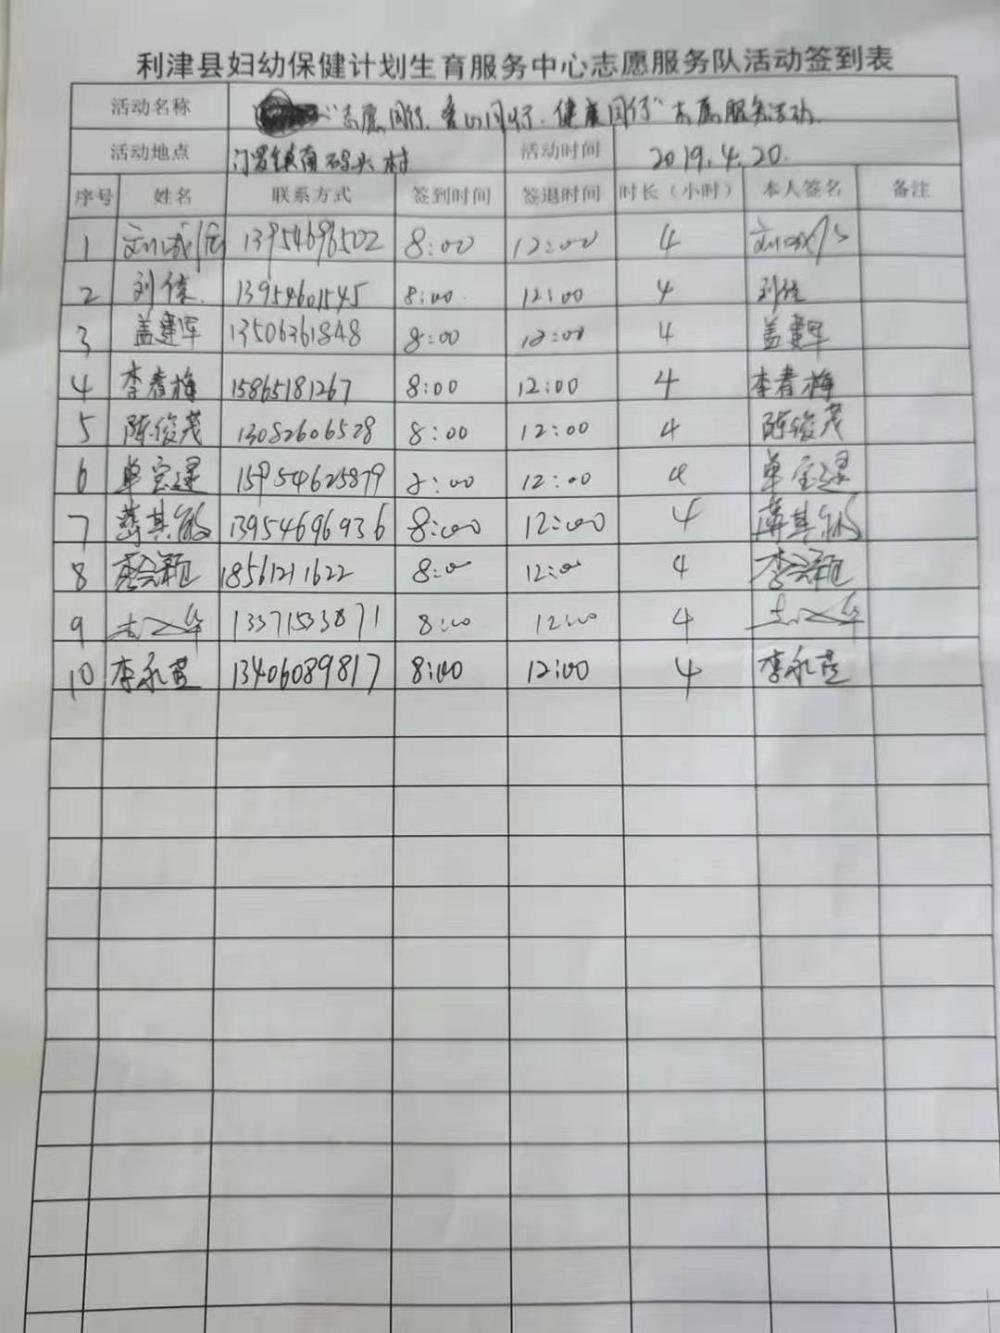 利津县妇幼保健计划生育服务中心志愿服务队活动签到表
活动名称 "志愿同行、爱心同行、健康同行"志愿服务活动
活动地点 南码头村 活动时间 2019.4.20.
序号 姓名 联系方式 签到时间 签退时间 时长（小时） 本人签名 备注
1 13954696502 8:00 12:00 4
2 刘倩 13954601545 8:00 12:00 4 刘倩
3 盖建军 13506361848 8:00 12:00 4 盖建军
4 李春梅 15865181267 8:00 12:00 4 李春梅
5 陈俊茂 13082606528 8:00 12:00 4 陈俊茂
6 单宝 15954625879 8:00 12:00 4 单宝
7 13954696936 8:00 12:00 4
8 18561211622 8:00 12:00 4
9 8:00 12:00 4
10 李永 13406089817 8:00 12:00 4 李永